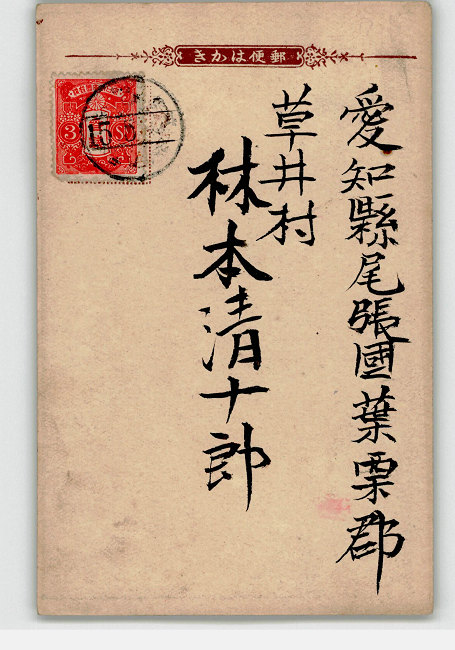 郵便はかき
愛知縣尾張國葉栗郡
草井村
林本清十郎
3 Sn
15